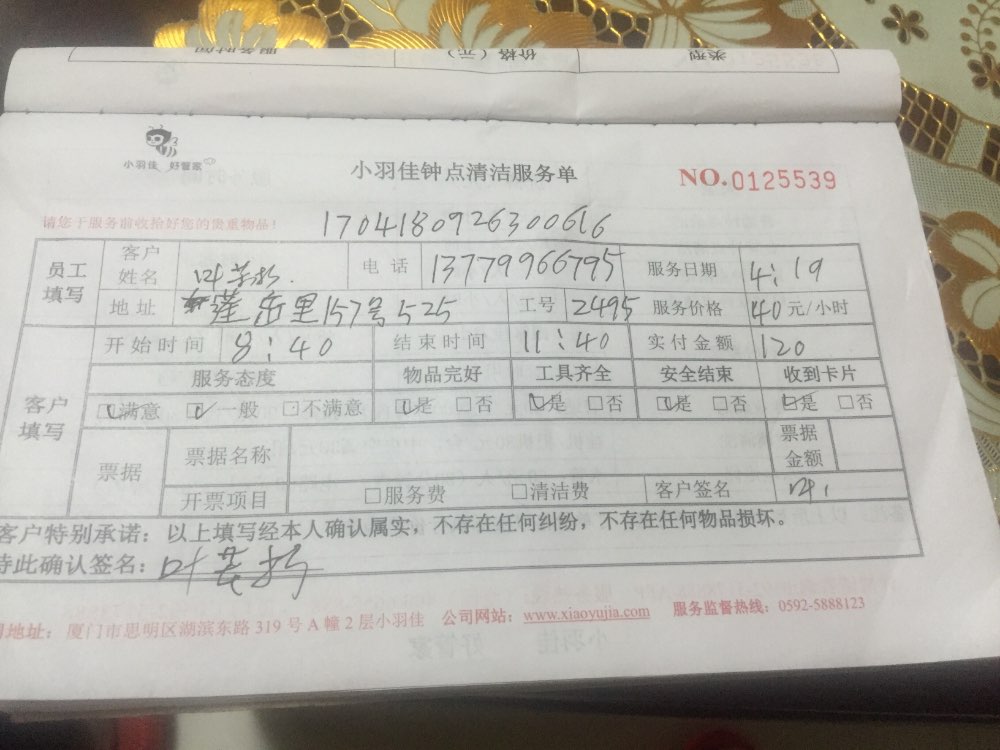 类型 价格（元） 服务时间
小羽佳 好管家
小羽佳钟点清洁服务单 NO.0125539
请您于服务前收拾好您的贵重物品！ 1704180926300616
员工填写 客户姓名 叶 电话 13779966795 服务日期 4:19
地址 莲岳里157号525 工号 2495 服务价格 40元/小时
客户填写 开始时间 8:40 结束时间 11:40 实付金额 120
服务态度 物品完好 工具齐全 安全结束 收到卡片
☑满意 ☑一般 □不满意 ☑是 □否 ☑是 □否 ☑是 □否 ☑是 □否
票据 票据名称 票据金额
开票项目 □服务费 □清洁费 客户签名 叶
客户特别承诺：以上填写经本人确认属实，不存在任何纠纷，不存在任何物品损坏。
特此确认签名：叶
地址：厦门市思明区湖滨东路319号A幢2层小羽佳 公司网站：www.xiaoyujia.com 服务监督热线：0592-5888123